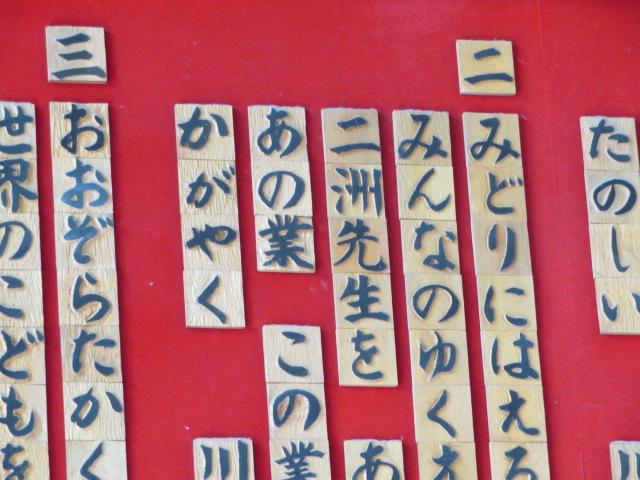 たのしい
二
みどりにはえ
みんなのゆく
二洲先生を あ
あの業 この業
かがやく
三
おおぞらたかく
世界のこどもを